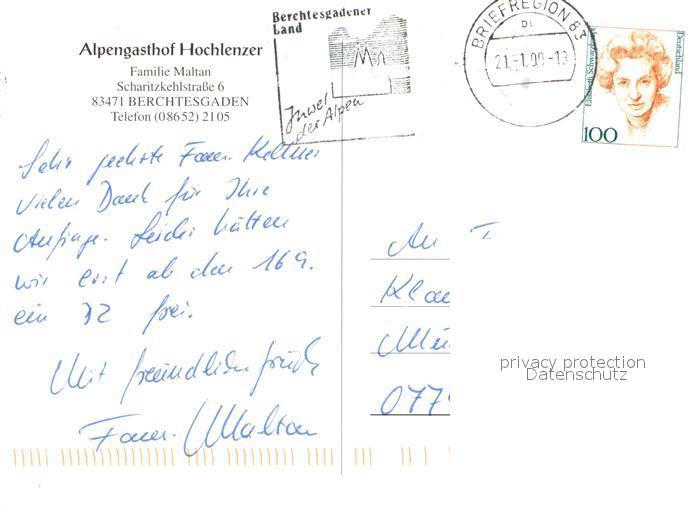 Alpengasthof Hochlenzer
Familie Maltan
Scharitzkehlstraße 6
83471 BERCHTESGADEN
Telefon (0 86 52) 21 05
Berchtesgadener
Land
Juwel
der Alpen
BRIEFREGION 83
21.-1.00-13
Deutschland
100
Sehr geehrte Fam. Kellner
vielen Dank für Ihre
Anfrage. Leider hätten
wir erst ab den 16 9.
ein DZ frei.
Mit freundlichen Grüßen
Fam. Maltan
An
077
privacy protection
Datenschutz